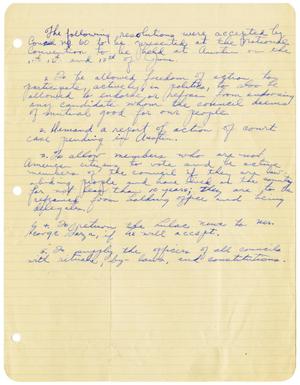 The following resolutions were accepted by
Council No. 60 to be presented at the National
Convention to be held at Austin on the
11th and 12th of June.
1. To be allowed freedom of action, to
participate actively in politics, to also be
allowed to endorse or refrain from endorsing
any candidate whom the council deems
of mutual good for our people.
2. Demand a report of action of court
case pending in Austin.
3. To allow members who are not
American citizens to vote and be active
members of the council if they are law
abiding people and have lived in the country
for not less than 10 years; they are to be
refrained from holding office and being
delegates.
4. To return the Lulac news to Mr.
George Garza, if he will accept.
5. To supply the officers of all councils
with rituals, by-laws, and constitutions.